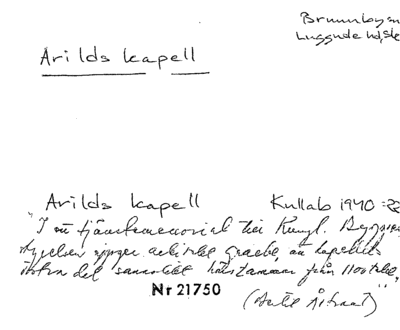 Brunnby sn
Luggude hd, Sk
Arilds kapell
Arilds kapell Kullab 1940 :22
"I en tjänstememorial till Kungl. Byggnads
styrelsen arkitekt Graebe, att kapellets
östra del sannolikt härstammar från 1100talet,"
Nr 21750